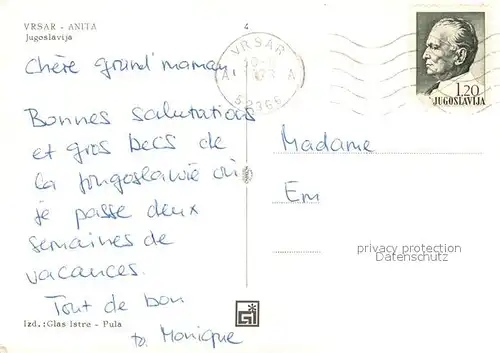 VRSAR - ANITA
Jugoslavija
4
VRSAR
A A
52366
1.20
JUGOSLAVIJA
Chère grand'maman
Bonnes salutations
et gros becs de
la Jougoslawie où
je passe deux
semaines de
vacances.
Tout de bon
Monique
Madame
Em
privacy protection
Datenschutz
Izd.:Glas Istre - Pula